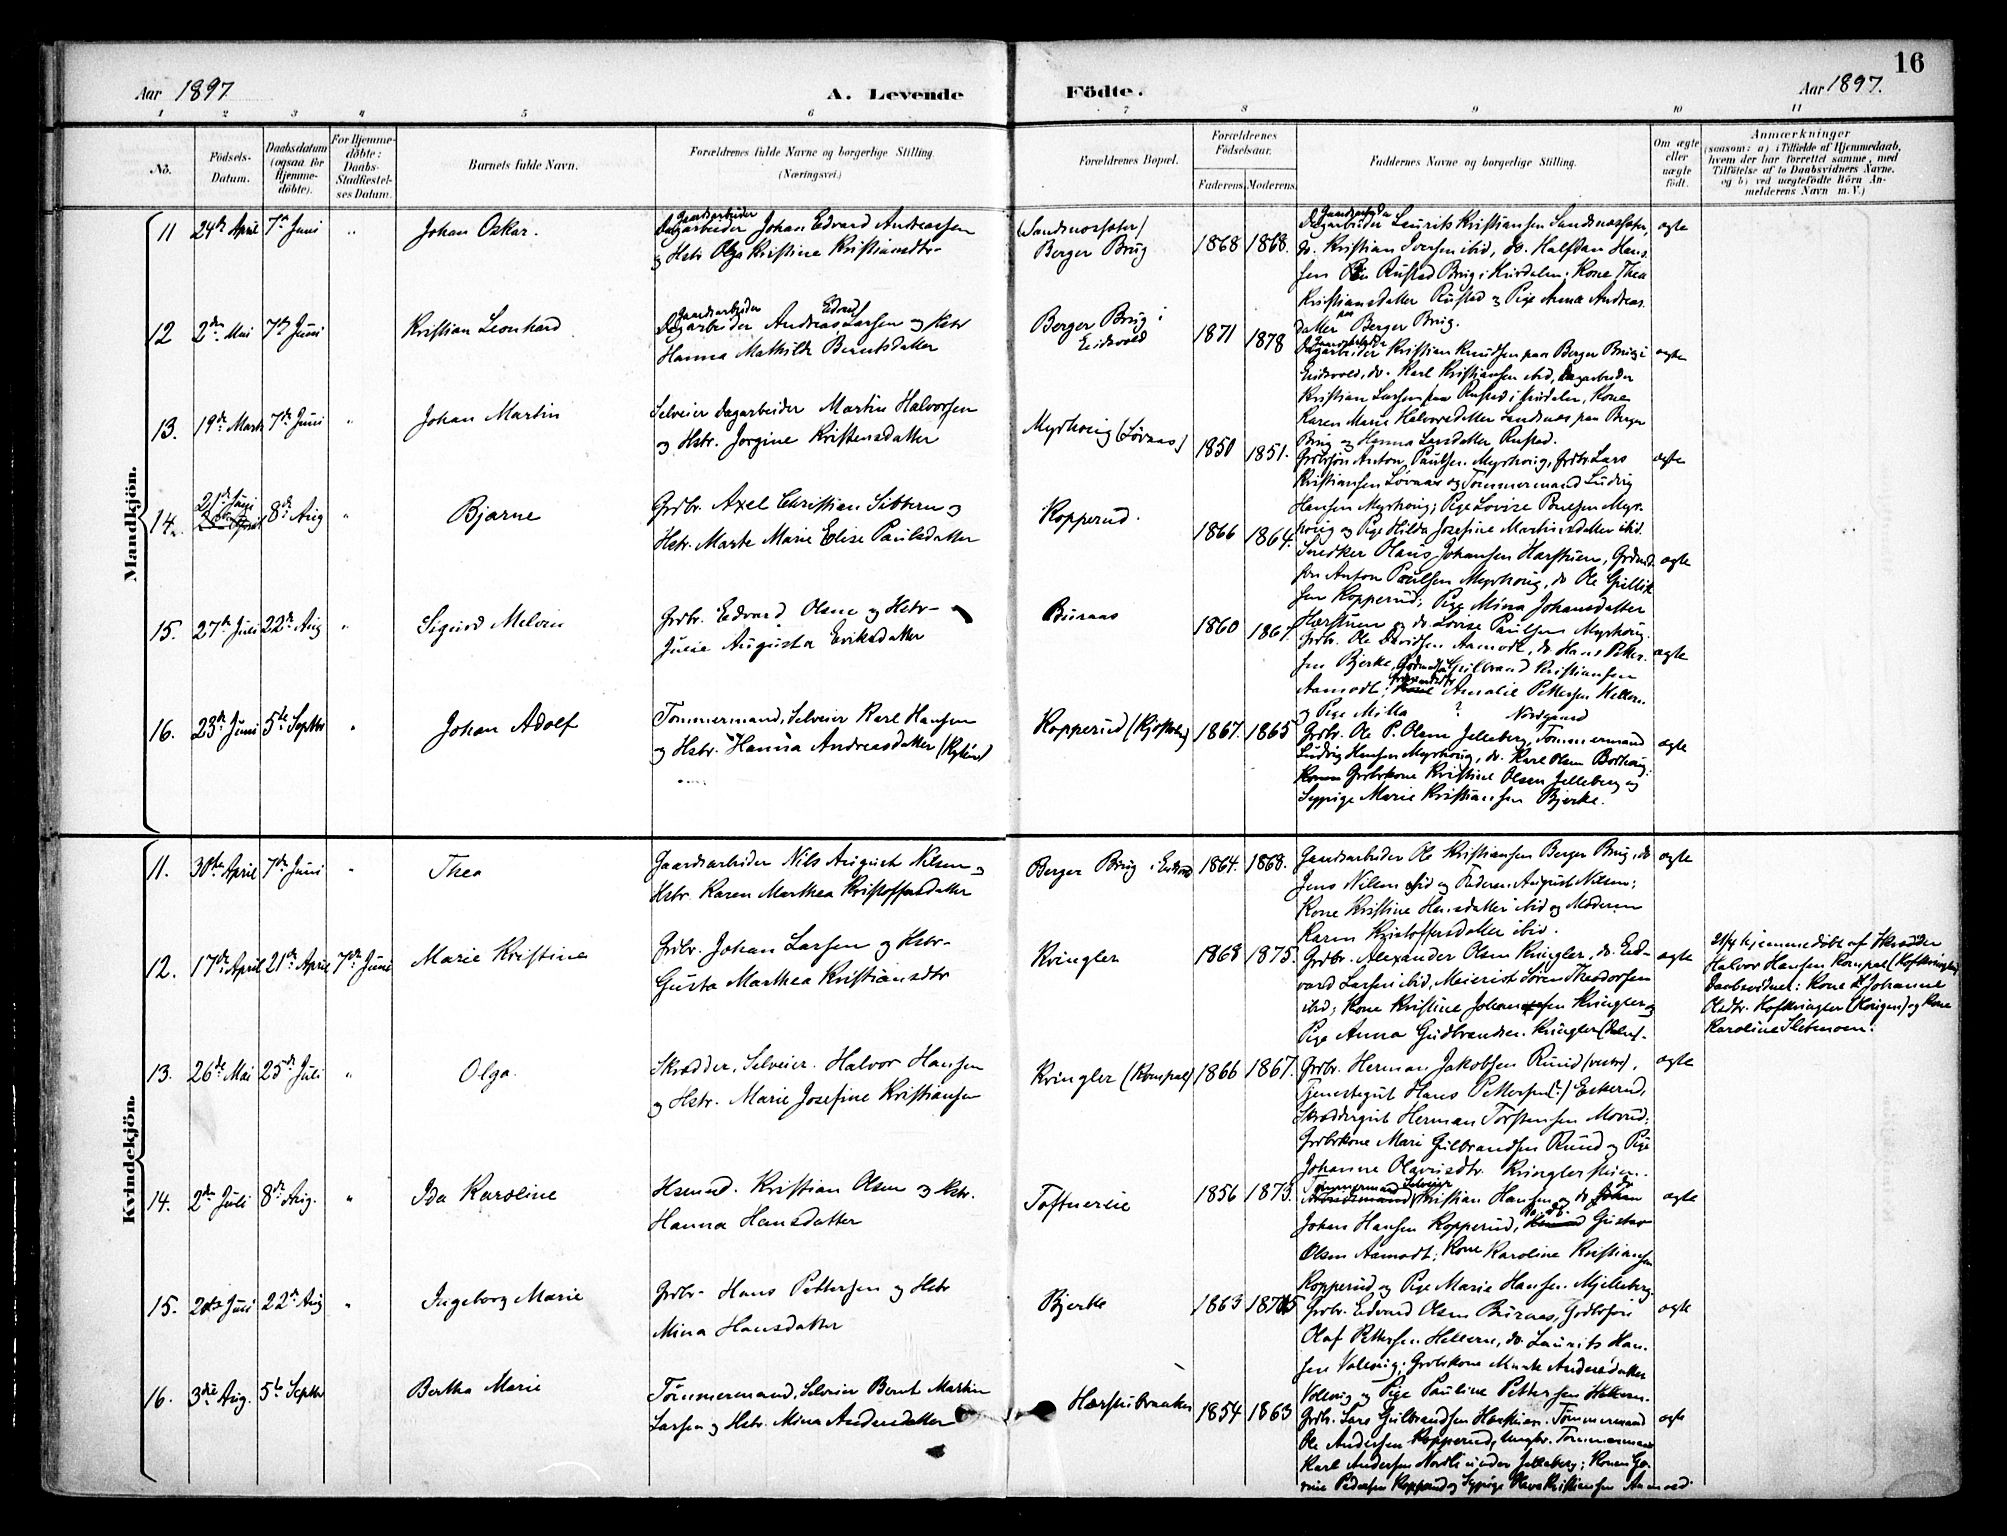 16
Aar 1897
A. Levende
Födte.
Aar 1897.
1 2 3 4 5 6 7 8 9 10 11
No.
Födsels-
Datum.
Daabsdatum
(ogsaa for
Hjemme-
döbte).
For Hjemme-
döbte:
Daabs-
Stadfæstel-
ses Datum.
Barnets fulde Navn.
Forældrenes fulde Navne og borgerlige Stilling.
(Næringsvei.)
Forældrenes Bopæl.
Forældrenes
Födselsaar.
Faderens.
Moderens.
Faddernes Navne og borgerlige Stilling.
Om ægte
eller
uægte
født.
Anmærkninger
(saasom: a) i Tilfælde af Hjemmedaab,
hvem der har forrettet samme, med
Tilföielse af to Daabsvidners Navne,
og b) ved uægtefödte Börn An-
melderens Navn m. V.)
Mandkjön.
11 24de April 7de Juni " Johan Oskar.
Gaardsarbeider
Dagarbeider Johan Edvard Andreassen
og Hstr Olga Kristine Kristiansdtr
(Sandsnæsseter)
Berger Brug
1868 1868.
Gaardsarbeider
Dagarbeider Laurits Kristiansen Sandsnæsseter,
do. Kristian Iversen ibid, do. Halfdan Han-
sen Rustad Brug i Hurdalen; Kone Thea
Kristiansdatter Rustad og Pige Anna Andreas-
datter paa Berger Brug.
ægte
12 2den Mai 7de Juni " Kristian Leonhard
Gaardsarbeider
Dagarbeider Andreas Larsen og Hstr
Hanna Mathilde Berntsdatter
Berger Brug i
Eidsvold
1871 1878
Gaardsarbeider
Dagarbeider Kristian Knudsen paa Berger Brug i
Eidsvold, do. Karl Kristiansen ibid, Dagarbeider
Kristian Larsen paa Rustad i Hurdalen, Kone
Karen Marie Halvorsdatter Sandsnæs paa Berger
Brug og Hanna Larsdatter Rustad.
ægte
13. 19de Marts 7de Juni " Johan Martin
Selveier Dagarbeider Martin Halvorsen
og Hstr. Jorgine Kristensdatter
Myrhoug (Lövaas)
1850 1851.
Grdbrsøn Anton Paulsen Myrhoug, Grdbr Lars
Kristiansen Løvaas og Tømmermand Ludvig
Hansen Myrhoug; Pige Lovise Poulsen Myr-
houg og Pige Hilda Josefine Martinsdatter ibid.
ægte
14. 21de Juni 8de Aug " Bjarne
Grdbr. Axel Christian Sibbern og
Hstr. Marte Marie Elise Paulsdatter
Kopperud.
1866 1864.
Snedker Olaus Johansen Harstuen, Grdmd.
søn Anton Paulsen Myrhoug, do Ole Gullik
sen Kopperud; Pige Mina Johansdatter
Hærstuen og do. Lovise Paulsen Myrhoug.
ægte
15. 27de Juli 22de Aug " Sigurd Melvin
Grdbr. Edvard Olsen og Hstr-
Julie Augusta Eriksdatter
Buraas
1860 1867.
Grdbr. Ole Davidsen Aamodt, do Hans Petter-
sen Bjerke, Gulbrand Kristiansen
Aamodt; Amalie Pettersen Hellern
og Pige Milla ? Nordgaard
ægte
16. 23de Juni 5te Septbr " Johan Adolf
Tømmermand, Selveier Karl Hansen
og Hstr. Hanna Andreasdatter
Kopperud
1867. 1865
Grdbr. Ole P. Olsen Jelleberg, Tømmermand
Ludvig Hansen Myrhoug, do. Karl Olsen
Grdbrkone Kristine Olsen Jelleberg og
Sypige Marie Kristiansen Bjerke.
ægte
Kvindekjön.
11. 30te April 7de Juni " Thea
Gaardsarbeider Nils August Nilsen og
Hstr. Karen Marthea Kristoffersdatter
Berger Brug i Eidsvold
1864. 1868.
Gaardsarbeider Ole Kristiansen Berger Brug, do
Jens Nilsen ibid og Faderen August Nilsen;
Kone Kristine Hansdatter ibid og Moderen
Karen Kristoffersdatter ibid.
ægte
12. 17de April 21de April 7de Juni Marie Kristine
Grdbr. Johan Larsen og Hstr-
Gusta Marthea Kristiansdtr
Kringler
1868 1875.
Grdbr. Alexander Olsen Kringler, do. Ed-
vard Larsen ibid, Meierist Søren Theodorsen
ibid; Kone Kristine Johansen Kringler og
Pige Anna Gudbrandsen Kringler
ægte
21/4 hjemmedøbt af Skrædder
Halvor Hansen Rompal (Hofkringler)
Daabsvidner: Kone Johanne
Olsdtr. Hofkringler og Kone
Karoline Sletmoen.
13. 26de Mai 25de Juli " Olga.
Skrædder, Selveier. Halvor Hansen
og Hstr. Marie Josefine Kristiansen
Kringler (Rompal)
1866 1867.
Grdbr. Herman Jakobsen Ruud (vestre),
Tjenestegut Hans Pettersen (?) Eskerud,
Skræddergut Herman Torstensen Morud;
Grdbrkone Mari Gulbrandsen Ruud og Pige
Johanne Olavusdtr. Kringlerstuen.
ægte
14. 2den Juli 8de Aug. " Ida Karoline
Husmd. Kristian Olsen og Hstr.
Hanna Hansdatter
Toftnereie
1856 1873.
Tømmermand Selveier
Kristian Hansen og do
Johan Hansen Kopperud, Gustav
Olsen Aamodt; Kone Karoline Kristiansen
Kopperud og Pige Marie Hansen Mjelleberg
ægte
15. 20de Juni 22de Aug " Ingeborg Marie
Grdbr- Hans Pettersen og Hstr
Mina Hansdatter
Bjerke
1863 1875
Grdbr. Edvard Olsen Buraas, Grdbrsøn
Olaf Pettersen Hellern, do. Laurits Han-
sen Valoug; Grdbrkone Marte Andersdatter
Valoug og Pige Pauline Pettersen Hellern.
ægte
16. 3die Aug. 5te Septbr Bertha Marie
Tömmermand, Selveier Bernt Martin
Larsen og Hstr. Mina Andersdatter
Hærstubraaten
1854 1863
Grdbr. Lars Gulbrandsen Hærstuen. Tømmermand
Ole Andersen Kopperud, Ungkr. Tømmermand
Karl Andersen Nordli under Jelleberg; Konen
Pedersen Kopperud og Sypige Olava Kristiansen Aamod.
ægte